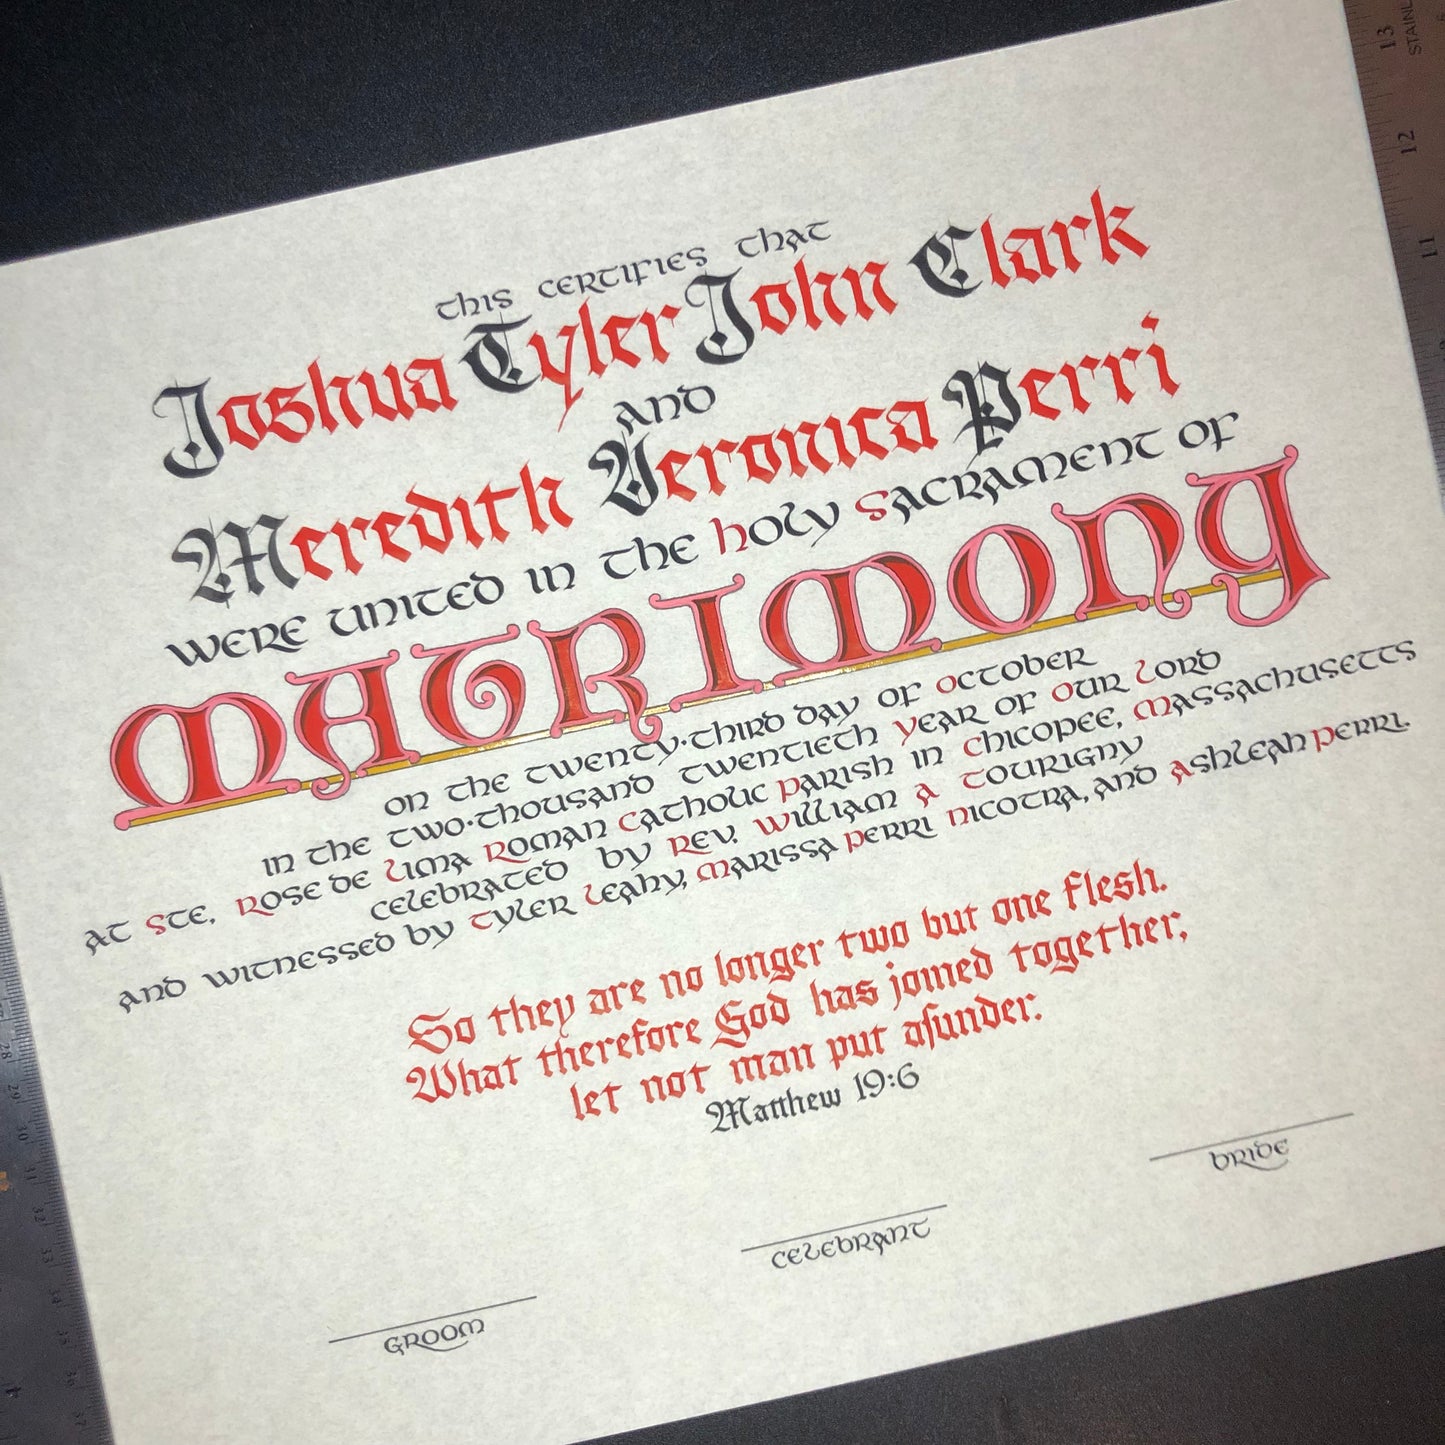 this certifies that
Joshua Tyler John Clark
and
Meredith Veronica Perri
were united in the holy Sacrament of
MATRIMONY
on the twenty·third day of October
in the two·thousand twentieth year of Our Lord
at Ste, Rose de Lima Roman Catholic Parish in Chicopee, Massachusetts
celebrated by Rev. William A Tourigny
and witnessed by Tyler Leahy, Marissa Perri Nicotra, and Ashleah Perri.
So they are no longer two but one flesh.
What therefore God has joined together,
let not man put aſunder.
Matthew 19:6
Bride
Celebrant
Groom
13
12
11
STAINL
28
29
30
31
32
33
37